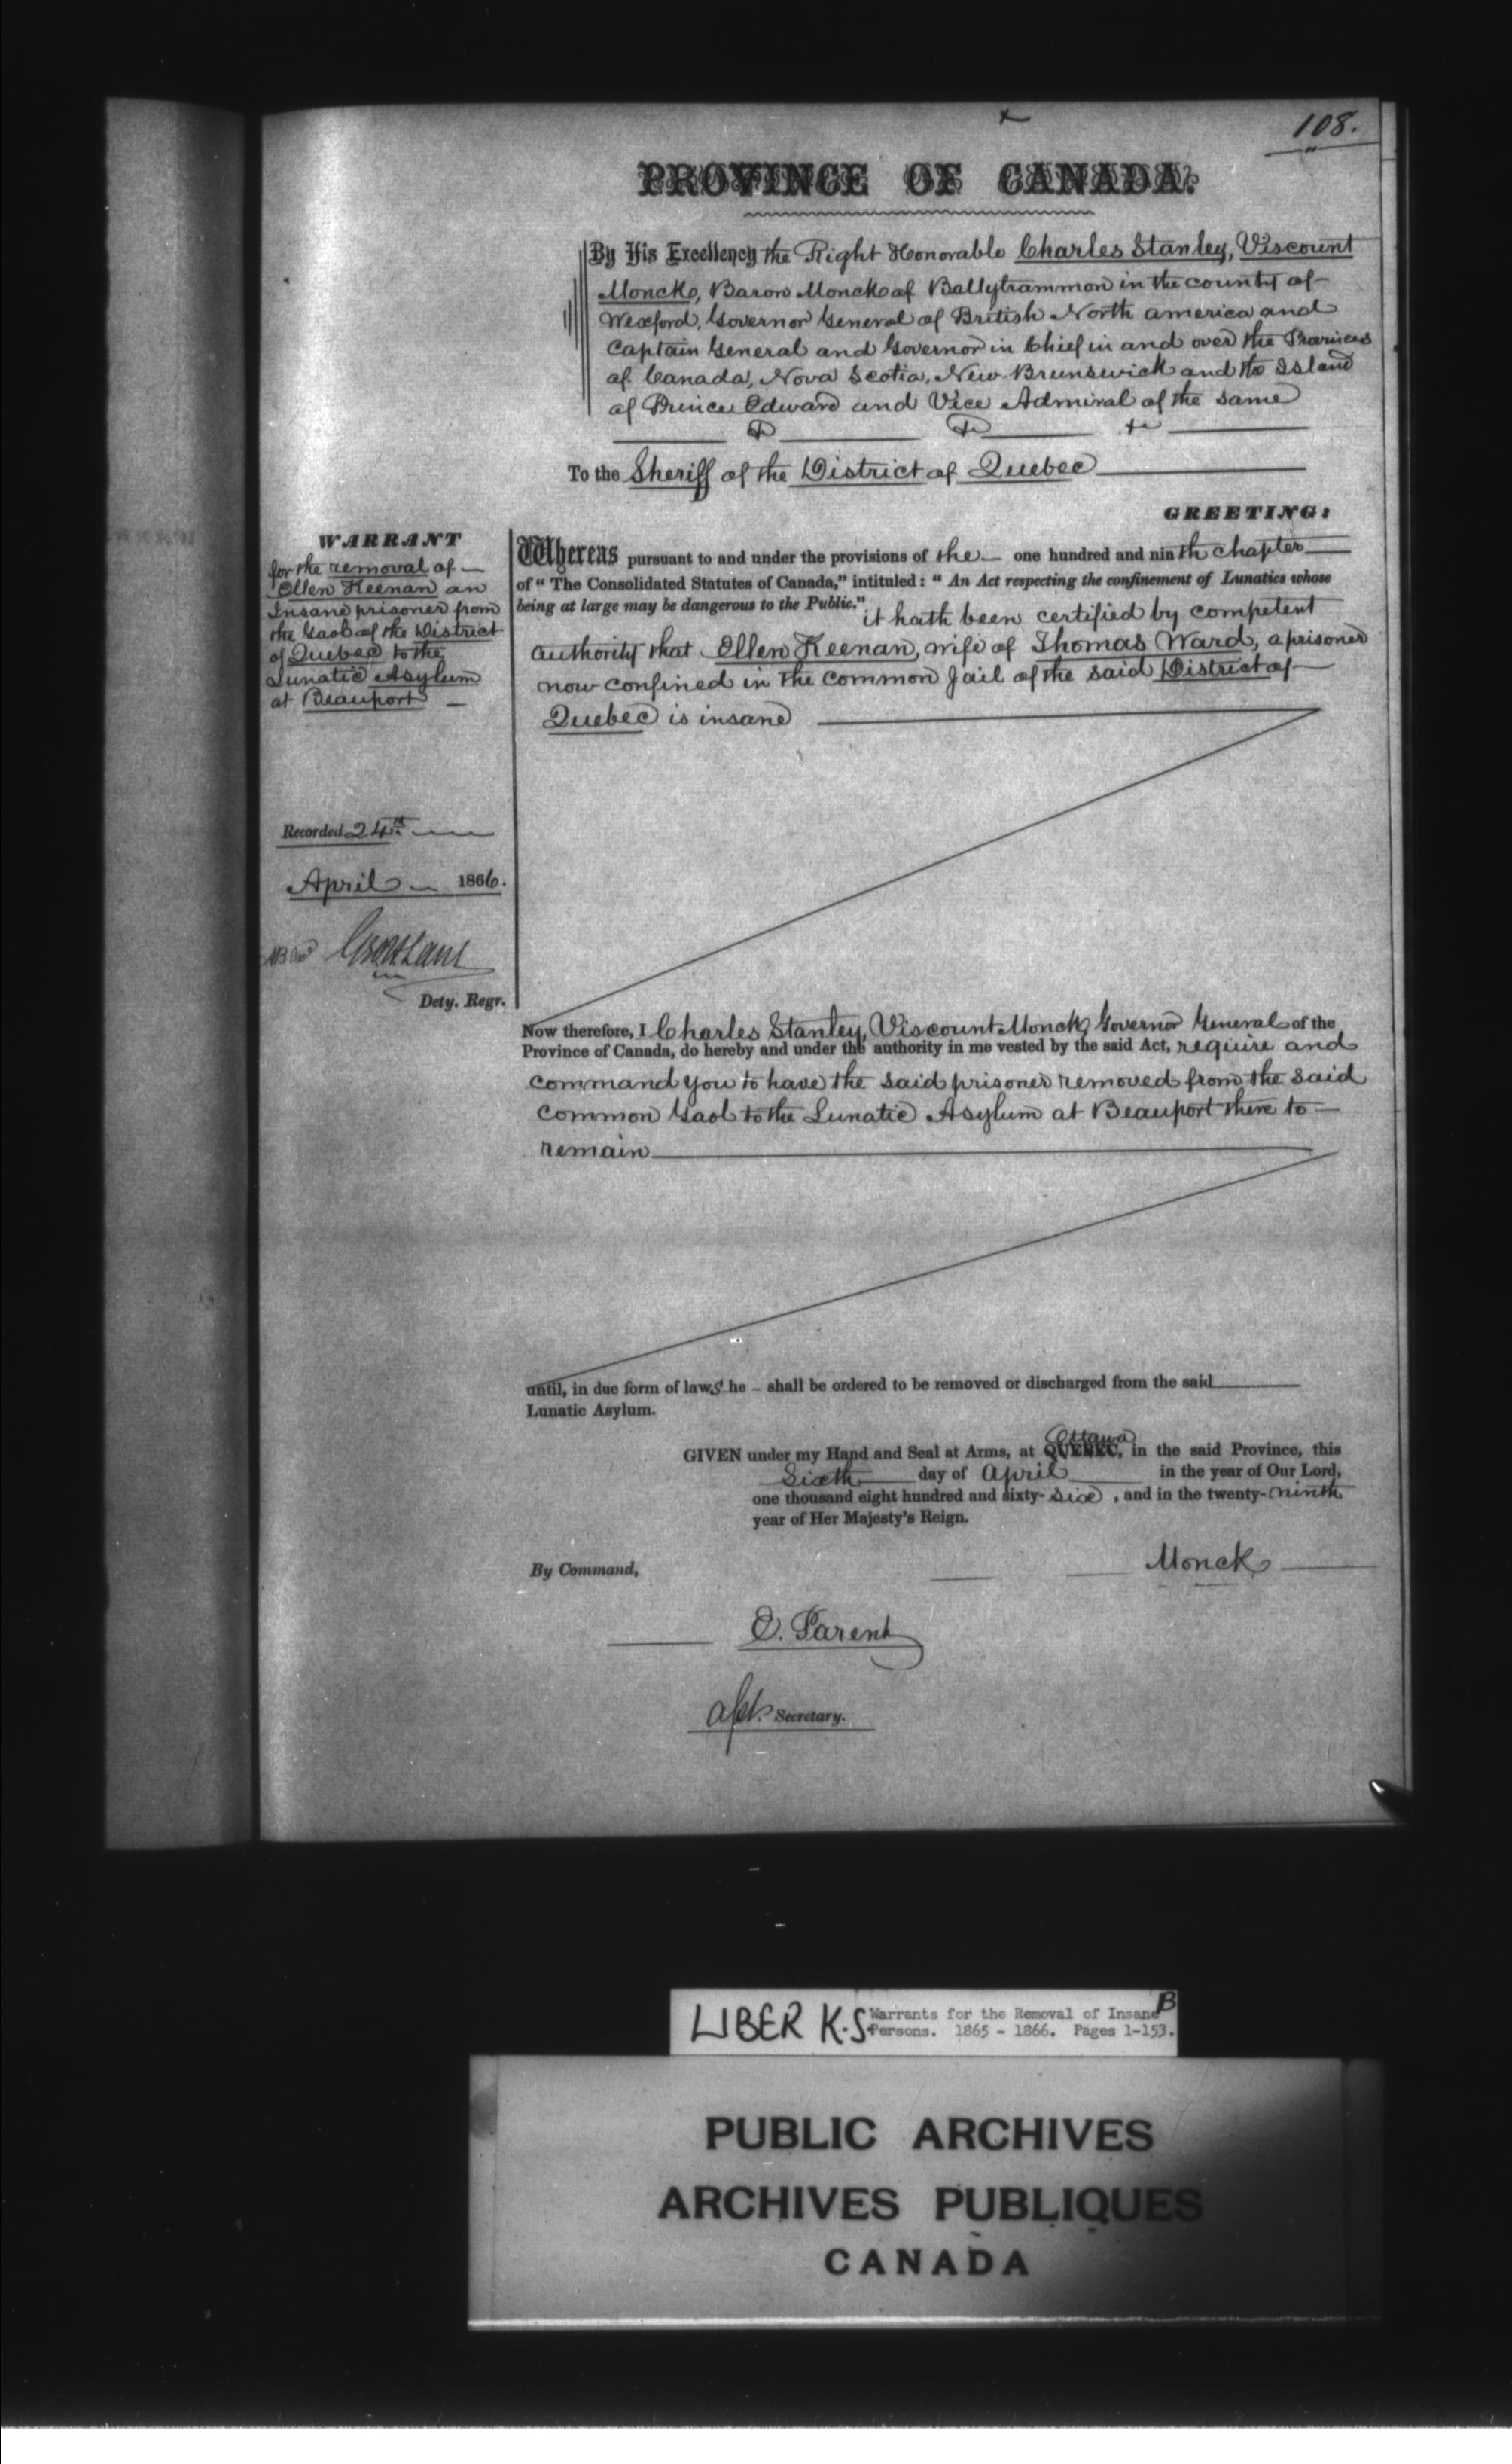 108.
PROVINCE OF CANADA.
By His Excellency the Right Honorable Charles Stanley, Viscount
Monck, Baron Monck of Ballytrammon in the county of
Wexford, Governor General of British North america and
Captain General and Governor in Chief in and over the Provinces
of Canada, Nova Scotia, New Brunswick and the Island
of Prince Edward and Vice Admiral of the same
To the Sheriff of the District of Quebec
GREETING:
WARRANT
for the removal of
Ellen Keenan an
Insane prisoner from
the Gaol of the District
of Quebec to the
Lunatic Asylum
at Beauport
Recorded 24th
April 1866.
Dety. Regr.
Whereas pursuant to and under the provisions of the one hundred and ninth chapter
of "The Consolidated Statutes of Canada," intituled: "An Act respecting the confinement of Lunatics whose
being at large may be dangerous to the Public," it hath been certified by competent
authority that Ellen Keenan, wife of Thomas Ward, a prisoner
now confined in the common Jail of the said District of
Quebec is insane
Now therefore, I Charles Stanley, Viscount Monck, Governor General of the
Province of Canada, do hereby and under the authority in me vested by the said Act, require and
command you to have the said prisoner removed from the said
common Gaol to the Lunatic Asylum at Beauport there to
remain
until, in due form of law, She shall be ordered to be removed or discharged from the said
Lunatic Asylum.
Ottawa
GIVEN under my Hand and Seal at Arms, at QUEBEC, in the said Province, this
Sixth day of April in the year of Our Lord,
one thousand eight hundred and sixty-six, and in the twenty-ninth
year of Her Majesty's Reign.
By Command,
Monck
E. Parent
Asst. Secretary.
LIBER K.S. Warrants for the Removal of Insane B
Persons. 1865 - 1866. Pages 1-153.
PUBLIC ARCHIVES
ARCHIVES PUBLIQUES
CANADA